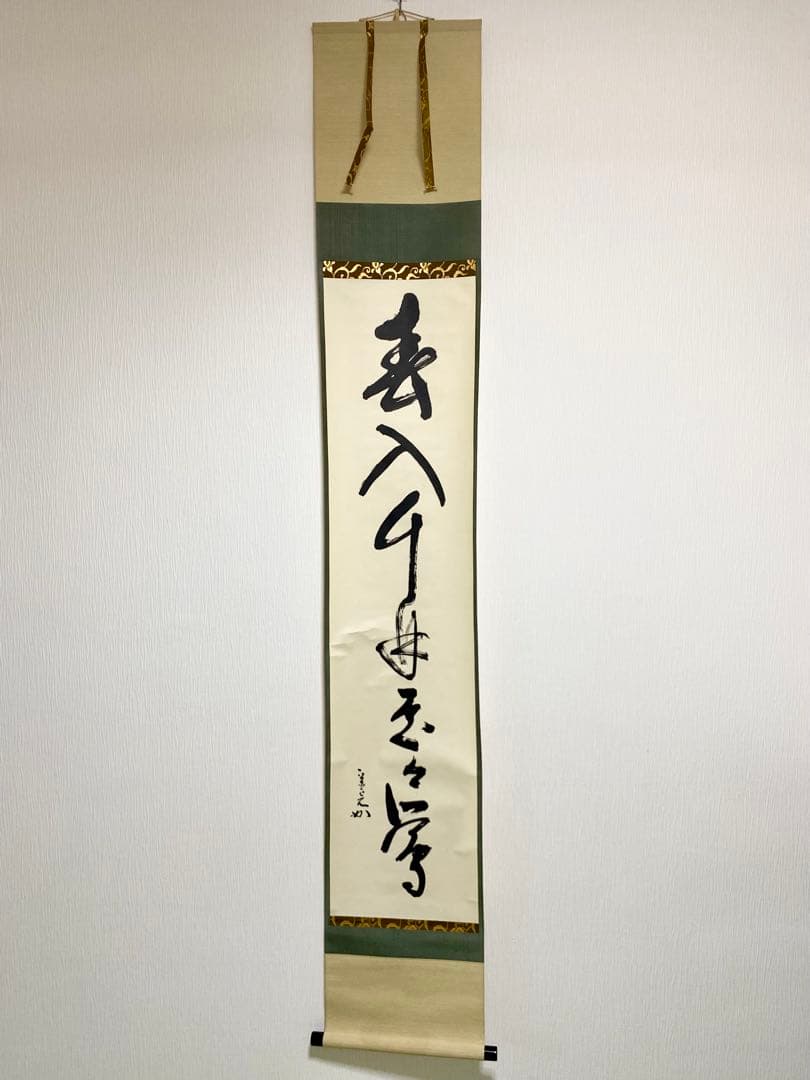 春入千林処々鶯